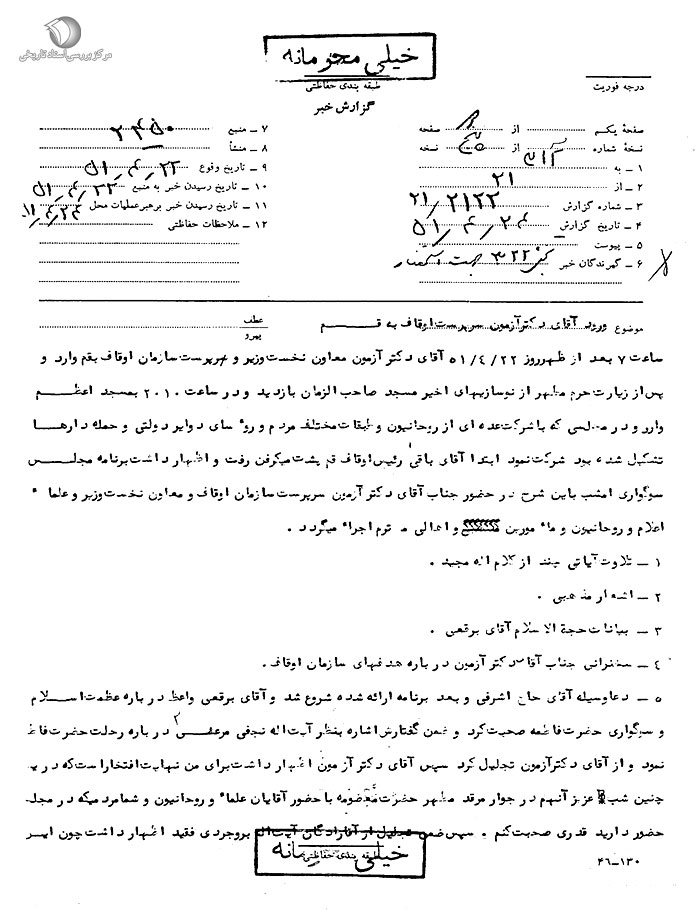 مرکز بررسی اسناد تاریخی
خیلی محرمانه
طبقه بندی حفاظتی
گزارش خبر
درجه فوریت
صفحهٔ یکم از صفحه
نسخهٔ شماره از نسخه
۱ ـ به
۲ ـ از ۲۱
۳ ـ شماره گزارش ۲۱/۲۱۲۲
۴ ـ تاریخ گزارش ۵۱/۴/۲۴
۵ ـ پیوست
۶ ـ گیرندگان خبر
۷ ـ منبع ۲۴۵۰
۸ ـ منشأ
۹ ـ تاریخ وقوع ۵۱/۴/۲۲
۱۰ ـ تاریخ رسیدن خبر به منبع ۵۱/۴/۲۲
۱۱ ـ تاریخ رسیدن خبر برهبر عملیات محل
۱۲ ـ ملاحظات حفاظتی
موضوع ورود آقای دکتر آزمون سرپرست اوقاف به قـــم
عطف
پیرو
ساعت ۷ بعد از ظهر روز ۵۱/۴/۲۲ آقای دکتر آزمون معاون نخست وزیر و سرپرست سازمان اوقاف بقم وارد و
پس از زیارت حرم مطهر از نوسازیهای اخیر مسجد صاحب الزمان بازدید و در ساعت ۲۰۱۰ بمسجد اعظم
وارد و در مجلسی که با شرکت عده ای از روحانیون و طبقات مختلف مردم و روسای دوایر دولتی و حمله دارها
تشکیل شده بود شرکت نمود ابتدا آقای باقی رئیس اوقاف قم پشت میکرفن رفت و اظهار داشت برنامه مجلس
سوگواری امشب باین شرح در حضور جناب آقای دکتر آزمون سرپرست سازمان اوقاف و معاون نخست وزیر و علماء
اعلام و روحانیون و مأمورین و اهالی محترم اجراء میگردد .
۱ ـ تلاوت آیاتی چند از کلام اله مجید .
۲ ـ اشعار مذهبی .
۳ ـ بیانات حجة الاسلام آقای برقعی .
۴ ـ سخنرانی جناب آقای دکتر آزمون در باره هدفهای سازمان اوقاف.
۵ ـ دعا وسیله آقای حاج اشرفی و بعد برنامه ارائه شده شروع شد و آقای برقعی واعظ در باره عظمت اسلام
و سوگواری حضرت فاطمه صحبت کرد و ضمن گفتارش اشاره بنظر آیت اله نجفی مرعشی در باره رحلت حضرت فاطمه
نمود و از آقای دکتر آزمون تجلیل کرد سپس آقای دکتر آزمون اظهار داشت برای من نهایت افتخار است که در یک
چنین شب عزیز آنهم در جوار مرقد مطهر حضرت معصومه با حضور آقایان علماء و روحانیون و شما مردمیکه در مجلس
حضور دارید قدری صحبت کنم . سپس ضمن تجلیل از آقازادگان آیت اله بروجردی فقید اظهار داشت چون امیر
خیلی محرمانه
طبقه بندی حفاظتی
۴۶-۱۳۰